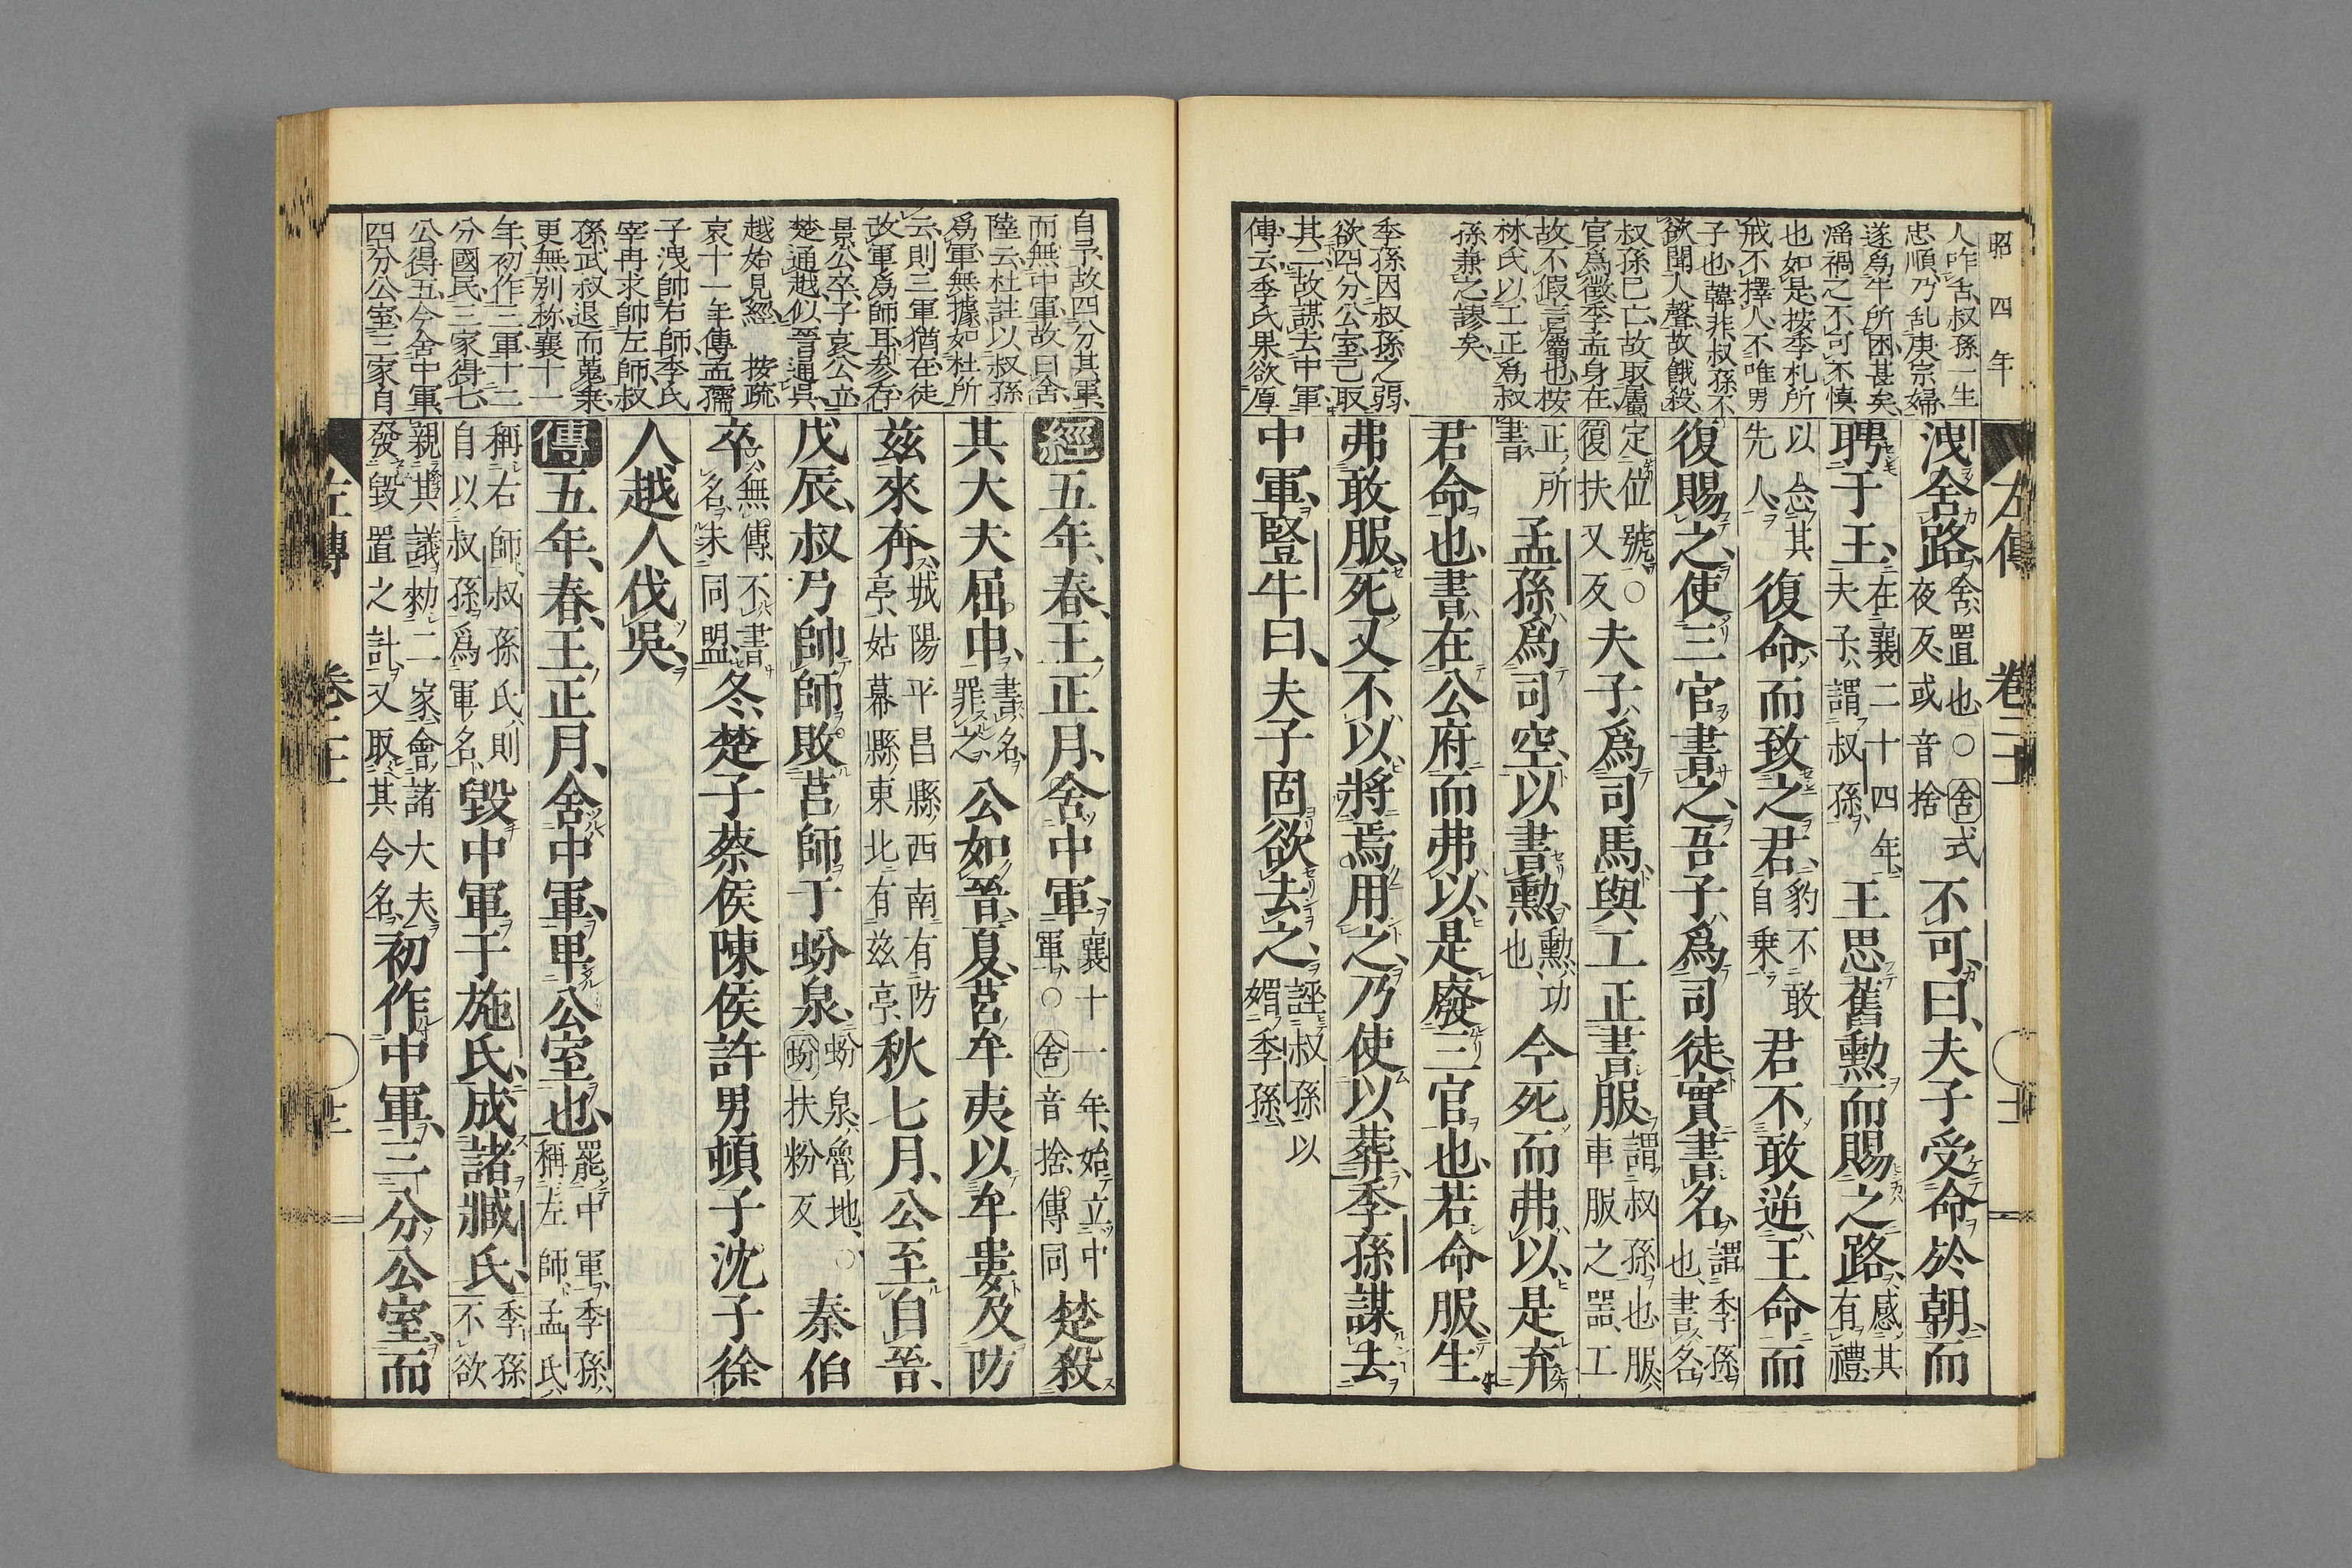 昭四年
人咋舌、叔孫一生
忠順、乃乱庚宗婦、
遂爲牛所困甚矣、
滛禍之不可不慎
也如是、按季札所
戒不擇人、不唯男
子也、韓非叔孫不
欲聞人聲、故餓殺、
叔孫已亡、故取屬
官爲徵、季孟身在
故不假言屬也、按
林氏以工正爲叔
孫兼之謬矣、
季孫因叔孫之弱、
欲四分公室、己取
其二、故謀去中軍、
傳云季氏果欲厚
左傳 卷二十一
洩舍路、舍、置也、○舍式夜反、或音捨不可曰、夫子受命於朝而
聘于王、在襄二十四年、夫子、謂叔孫、王思舊勲而賜之路、感其有禮、
以念其先人、復命而致之君、豹不敢自乗君不敢逆王命而
復賜之、使三官書之、吾子爲司徒、實書名、謂季孫也、書名
定位號、○復扶又反夫子爲司馬、與工正書服、謂叔孫也、服、車服之噐、工
正、所書、孟孫爲司空、以書勲、勲、功也今死而弗以、是弃
君命也、書在公府而弗以、是廢三官也、若命服、生
弗敢服、死又不以、將焉用之、乃使以葬、季孫謀去
中軍、豎牛曰、夫子固欲去之、誣叔孫以媚季孫、
自予、故四分其軍、
而無中軍、故曰舍、
陸云杜註以叔孫
爲軍無據、如杜所
云、則三軍猶在、徒
故軍爲師耳、参存
景公卒、子哀公立
楚通越、似晉通呉、
越始見經 按疏、
哀十一年傳、孟孺
子洩帥右師、季氏
宰再求帥左師、叔
孫武叔退而蒐乗、
更無別称、襄十一
年、初作三軍、十二
分國民、三家得七、
公得五、今舍中軍、
四分公室、三家自
經五年、春、王正月、舍中軍、襄十一年、始立中軍、○舍音捨、傳同楚殺
其大夫屈申、書名、罪之、公如晉、夏、莒牟夷以牟婁及防
茲來奔、城陽平昌縣西南有防亭、姑幕縣東北有茲亭、秋七月、公至自晉、
戊辰、叔弓帥師敗莒師于蚡泉、蚡泉、魯地、○蚡扶粉反秦伯
卒、無傳、不書名、未同盟、冬、楚子蔡侯陳侯許男頓子沈子徐
人越人伐吳、
傳五年、春、王正月、舍中軍、卑公室也、罷中軍、季孫稱左師、孟氏
稱右師、叔孫氏則自以叔孫爲軍名、毀中軍于施氏、成諸臧氏、季孫不欲
親其議、勑二家、會諸大夫、發毀置之計、又取其令名、初作中軍、三分公室、而
左傳 卷二十一